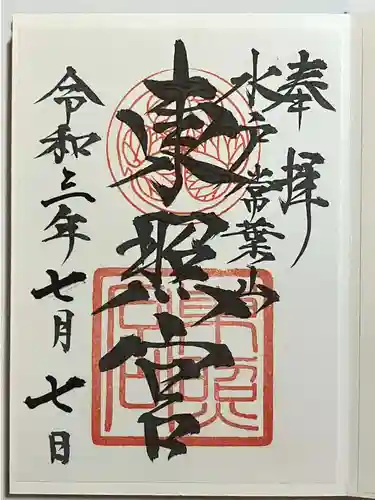 奉拝
水戸常葉山
東照宮
令和三年七月七日